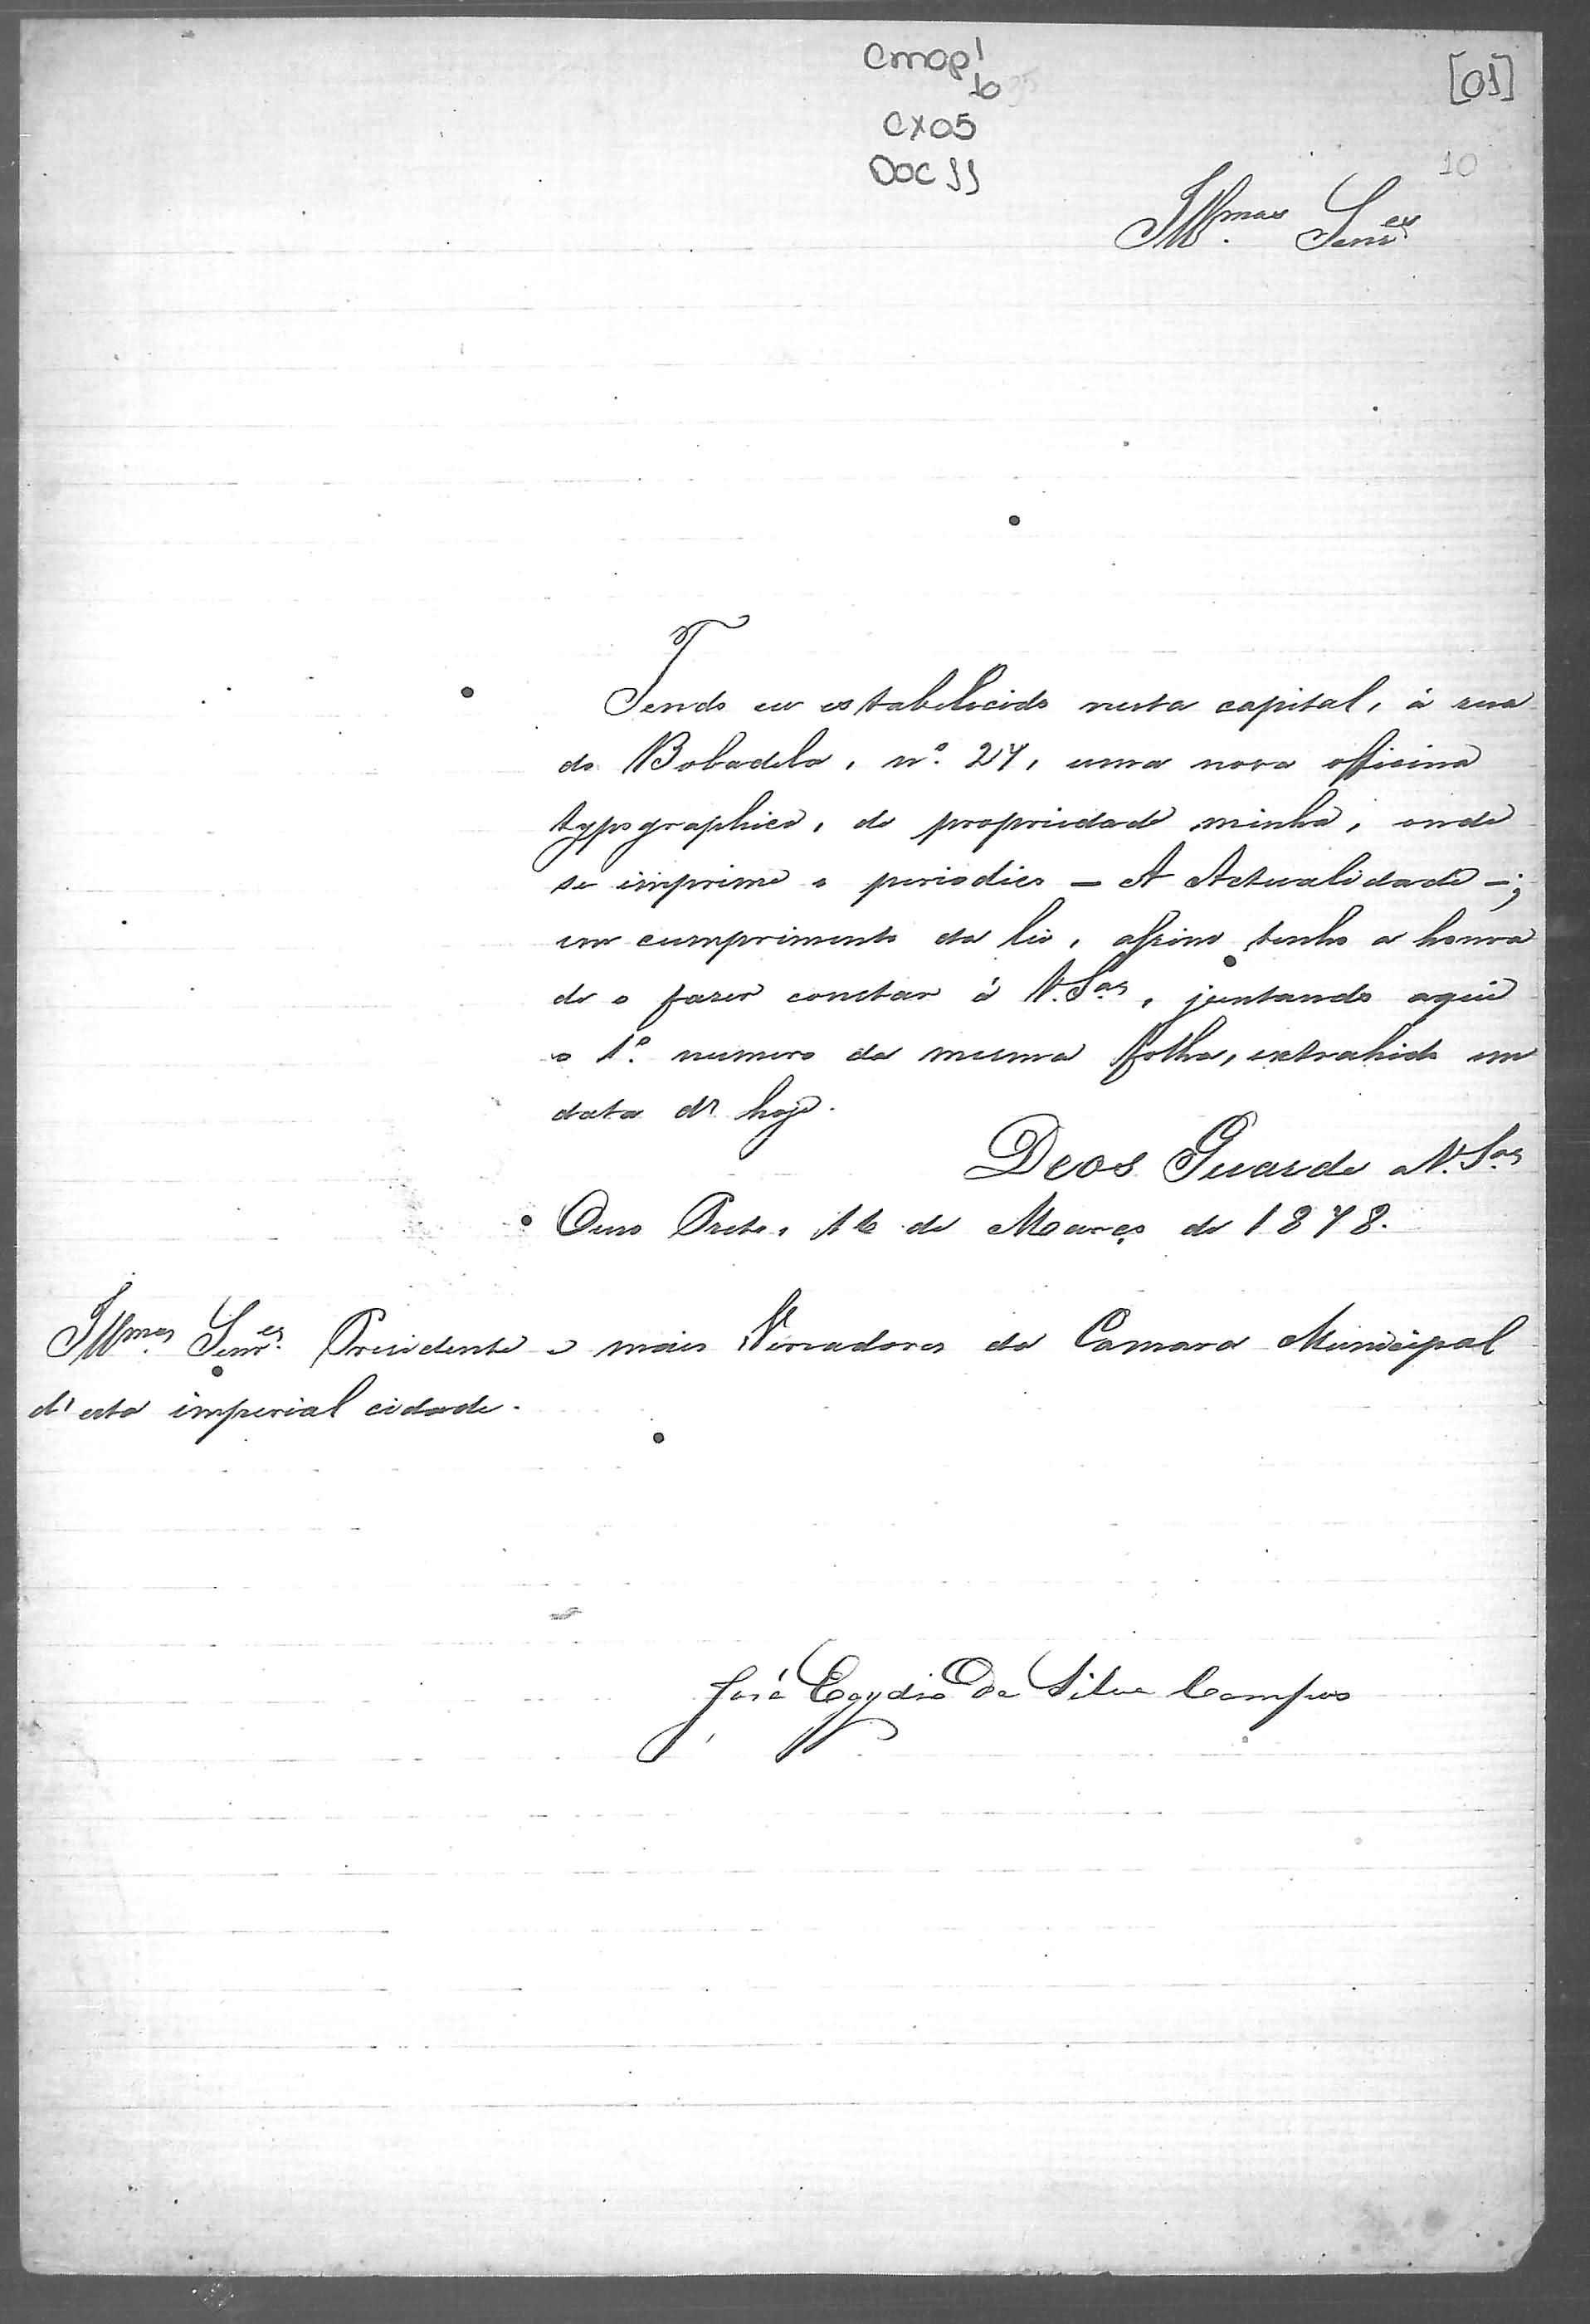 CMOP 1/
10
CX05
DOC 11
[01]
10
Illmos. Senres.
Tendo eu estabelecido nesta capital, á rua
do Bobadela, nº. 27, uma nova officina
typographica, de propriedade minha, onde
se imprime o periodico – A Actualidade –;
em cumprimento da lei, assim tenho a honra
de o fazer constar á V. Sas, juntando aqui
o 1º. numero da mesma folha, extrahido em
data de hoje.
Deos Guarde a V. Sas
Ouro Preto, 16 de Março de 1878.
Illmos. Senres. Presidente e mais Vereadores da Camara Municipal
d'esta imperial cidade.
José Egydio da Silva Campos